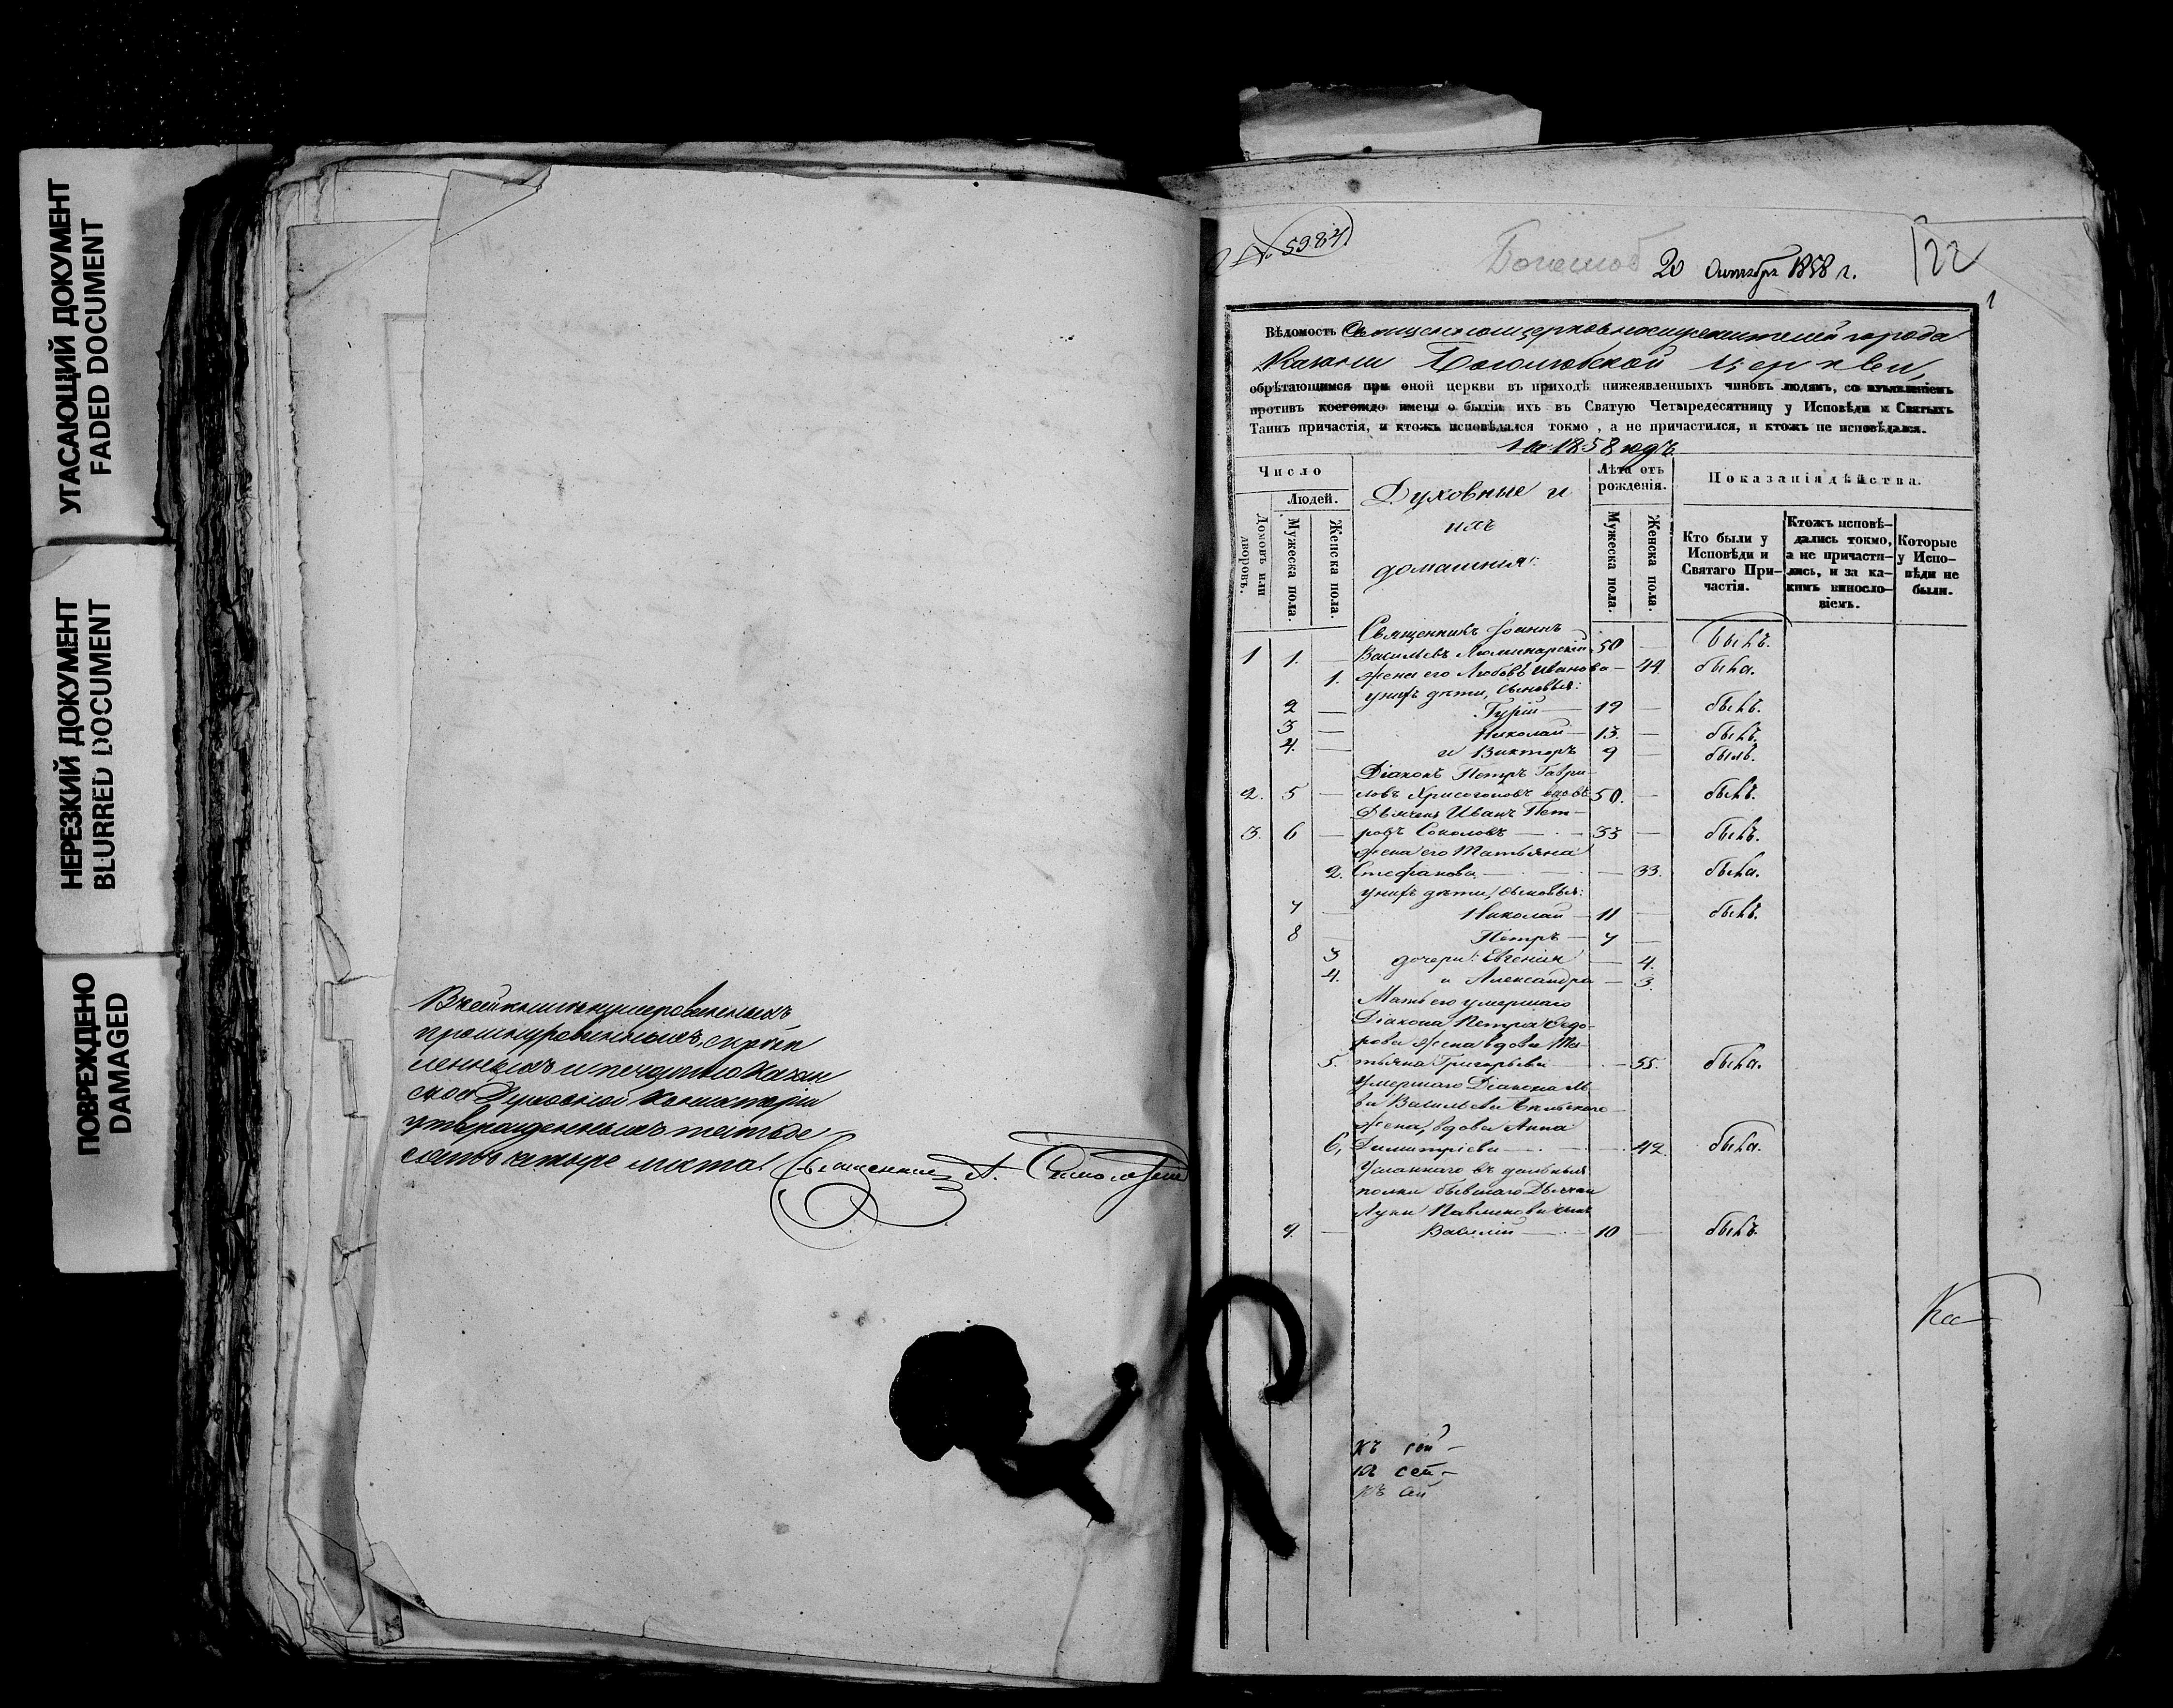 УГАСАЮЩИЙ ДОКУМЕНТ
FADED DOCUMENT
НЕРЕЗКИЙ ДОКУМЕНТ
BLURRED DOCUMENT
ПОВРЕЖДЕНО
DAMAGED
Въ сей книгѣ нумерованныхъ
прошнурованныхъ, скрѣп
ленныхъ и печатью Казан
ской Духовной Консисторіи
утвержденныхъ
четыре листа. Священникъ А.
№ 5984
20 Октября 1858 г.
122
1
Вѣдомость Священноцерковнослужителей города
Казани Богословской церкви,
обрѣтающимся при оной церкви въ приходѣ нижеявленныхъ чиновъ людямъ, со изъявленіемъ
противъ коегождо имени о бытіи ихъ въ Святую Четыредесятницу у Исповѣди и Святыхъ
Таинъ причастія, и ктожъ исповѣдался токмо, а не причастился, и ктожъ не исповѣдался.
На 1858 годъ
Число
Людей.
Домовъ или дворовъ.
Мужеска пола.
Женска пола.
Духовные и
ихъ
домашнія:
Лѣта отъ рожденія.
Мужеска пола.
Женска пола.
Показанія дѣйства.
Кто были у Исповѣди и Святаго Причастія.
Ктожъ исповѣдались токмо, а не причастились, и за какимъ винословіемъ.
Которые у Исповѣди не были.
Священникъ Іоаннъ
1 1. — Васильевъ Люминарскій 50 — былъ.
1. жена его Любовь Иванова — 44. была.
у нихъ дѣти, сыновья:
2 — Гурій — 19 — былъ.
3 — Николай — 13. — былъ.
4. — и Викторъ 9 — былъ.
Діаконъ Петръ Гаври-
2. 5 — ловъ Хрисогоновъ вдовъ 50. — былъ.
Дьячекъ Иванъ Пет-
3. 6 — ровъ Соколовъ — 33 — былъ.
жена его Татьяна
2. Стефанова — — 33. была.
у нихъ дѣти, сыновья:
7 — Николай — 11 — былъ.
8 — Петръ — 7 —
3 дочери: Евгенія — 4.
4. и Александра — 3.
Мать его умершаго
Діакона Петра Ѳедо-
рова жена вдова Та-
5. тьяна Григорьева — 55. была.
Умершаго Діакона Ль-
ва Васильева
жена, вдова Анна
6, Димитріева — 42. была.
Усланнаго въ дальныя
полки бывшаго Дьячка
Луки Павликова сынъ
9. — Василій — 10 — былъ.
Ка-
къ сей —
къ сей —
къ сей